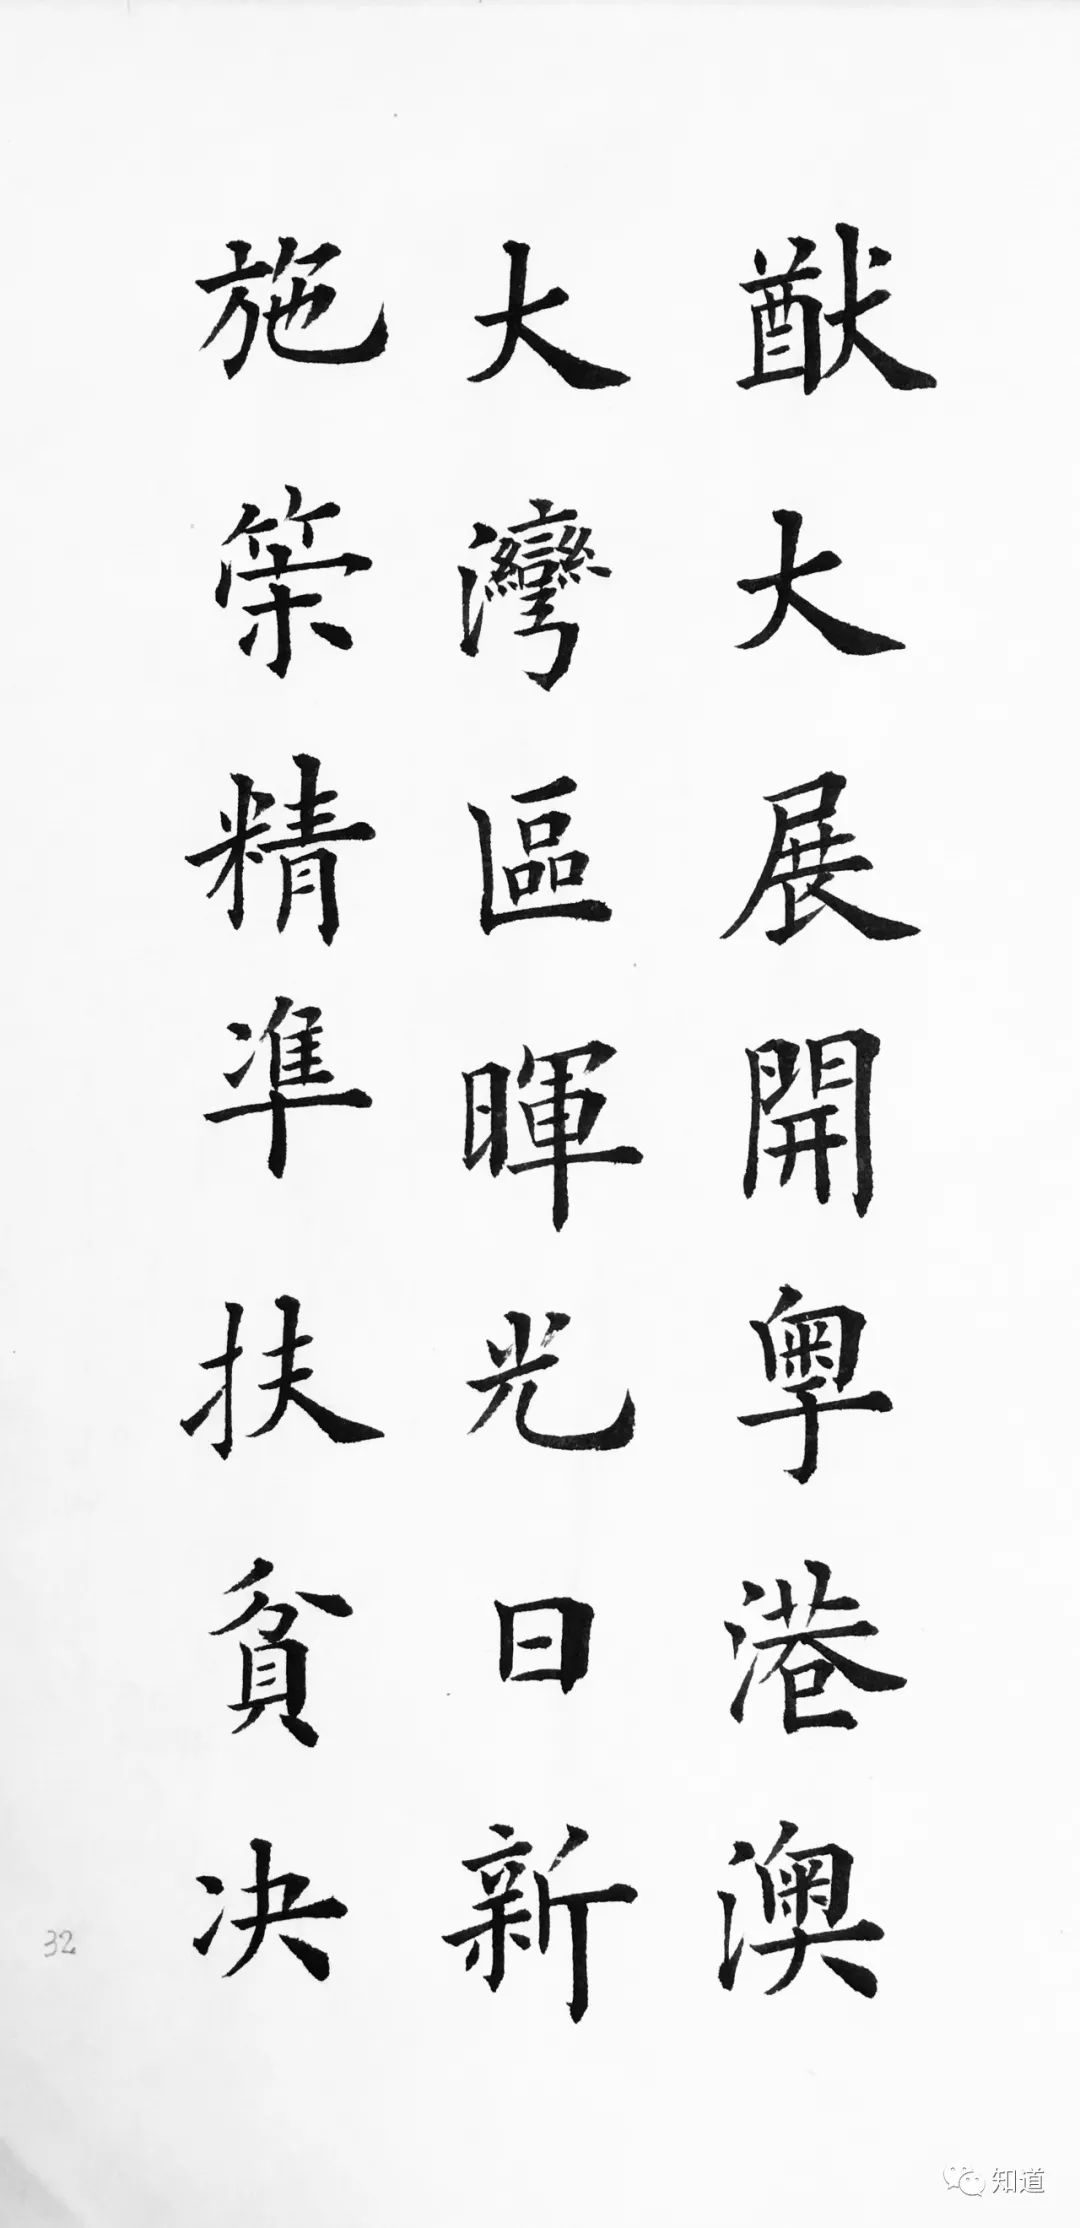 猷大展開粵港澳
大灣區暉光日新
施策精準扶貧決
32
知道